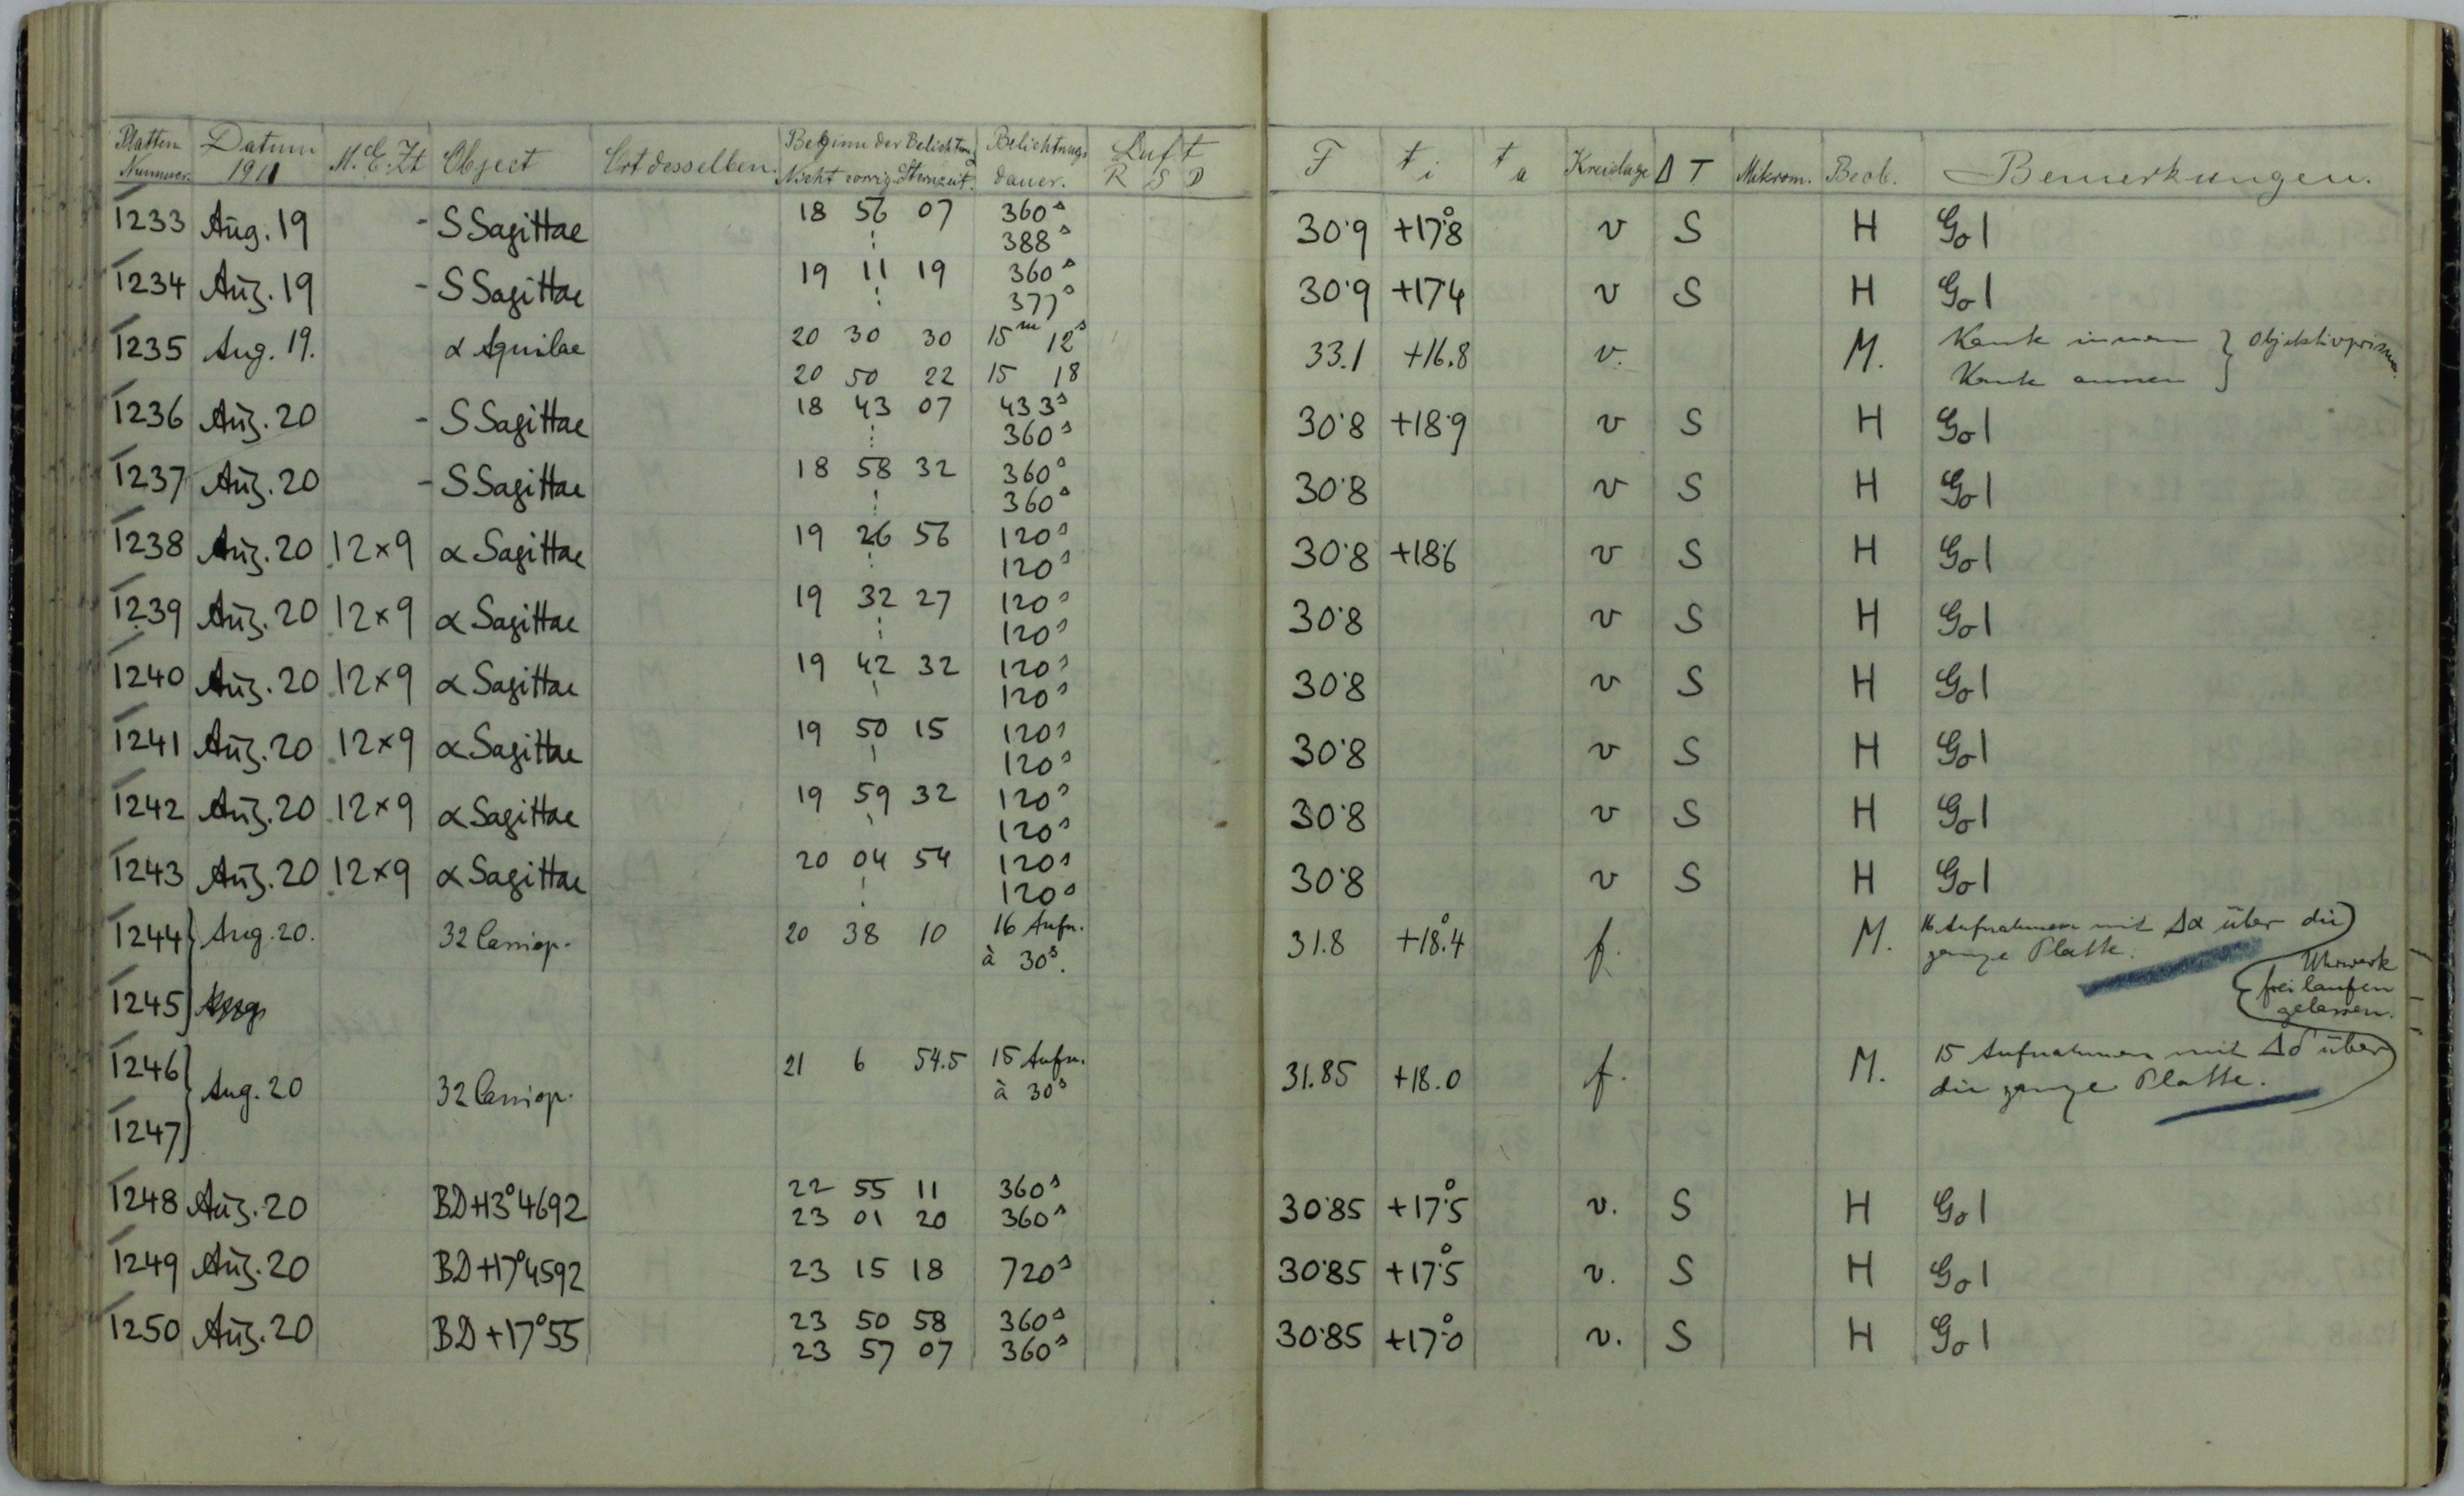 Platten Nummer. Datum 1911 M.E.Zt Object Ort desselben. Beginn der Belichtung Nicht corrig. Sternzeit. Belichtungs dauer. Luft R S D F t i t a Kreislage Δ T Mikrom. Beob. Bemerkungen.
1233 Aug. 19 - S Sagittae 18 56 07 360s 30.9 +17.°8 v S H Go 1
: 388s
1234 Aug. 19 - S Sagittae 19 11 19 360s 30.9 +17.4 v S H Go 1
: 377s
1235 Aug. 19. α Aquilae 20 30 30 15m 12s 33.1 +16.8 v. M. Kante innen } Objektivprisma.
20 50 22 15 18 Kante aussen
1236 Aug. 20 - S Sagittae 18 43 07 433s 30.8 +18.9 v S H Go 1
: 360s
1237 Aug. 20 - S Sagittae 18 58 32 360s 30.8 v S H Go 1
: 360s
1238 Aug. 20 12×9 α Sagittae 19 26 56 120s 30.8 +18.6 v S H Go 1
: 120s
1239 Aug. 20 12×9 α Sagittae 19 32 27 120s 30.8 v S H Go 1
: 120s
1240 Aug. 20 12×9 α Sagittae 19 42 32 120s 30.8 v S H Go 1
120s
1241 Aug. 20 12×9 α Sagittae 19 50 15 120s 30.8 v S H Go 1
120s
1242 Aug. 20 12×9 α Sagittae 19 59 32 120s 30.8 v S H Go 1
120s
1243 Aug. 20 12×9 α Sagittae 20 04 54 120s 30.8 v S H Go 1
120s
1244 } Aug. 20. 32 Cassiop. 20 38 10 16 Aufn. 31.8 +18.°4 f. M. 16 Aufnahmen mit Δα über die
à 30s. ganze Platte.
1245
Uhrwerk
frei laufen
gelassen.
1246 } Aug. 20 32 Cassiop. 21 6 54.5 15 Aufn. 31.85 +18.0 f. M. 15 Aufnahmen mit Δδ über
à 30s die ganze Platte.
1247
1248 Aug. 20 BD+13°4692 22 55 11 360s 30.85 +17.°5 v. S H Go 1
23 01 20 360s
1249 Aug. 20 BD+17°4592 23 15 18 720s 30.85 +17.°5 v. S H Go 1
1250 Aug. 20 BD+17°55 23 50 58 360s 30.85 +17.°0 v. S H Go 1
23 57 07 360s